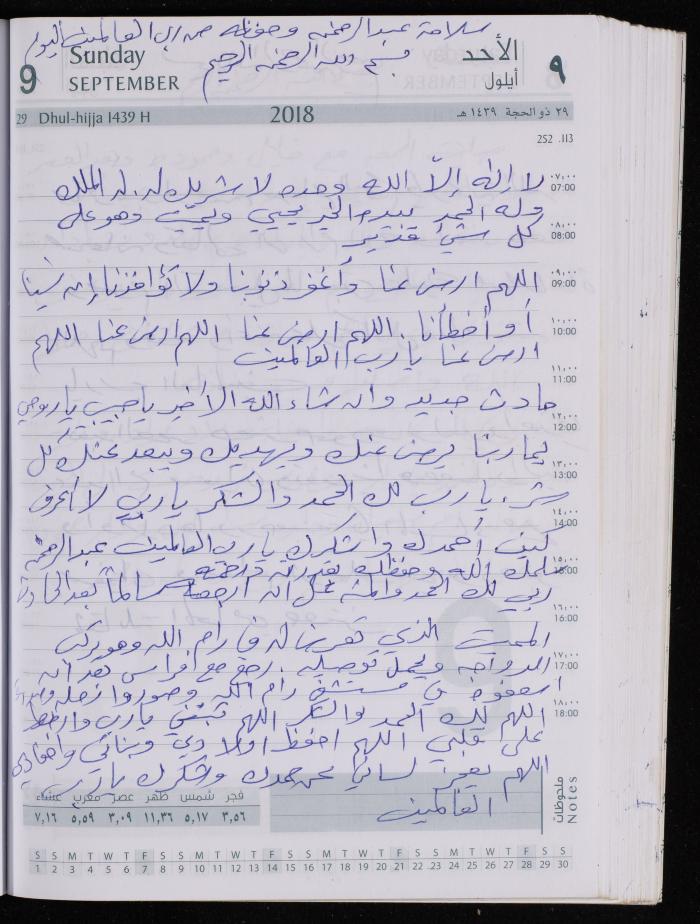 سلامة عبد الرحمن وحفظه من رب العالمين اليوم
بسم الله الرحمن الرحيم
9 Sunday الأحد ٩
SEPTEMBER أيلول
29 Dhul-hijja 1439 H 2018 ٢٩ ذو الحجة ١٤٣٩ هـ
252 .113
٠٧,٠٠ 07:00 لا إله إلا الله وحده لا شريك له، له الملك
وله الحمد بيده الخير يحيي ويميت وهو على
٠٨,٠٠ 08:00 كل شيء قدير
٠٩,٠٠ 09:00 اللهم ارض عنا وأغفر ذنوبنا ولا تؤاخذنا إن نسينا
١٠,٠٠ 10:00 أو أخطأنا اللهم ارض عنا اللهم ارض عنا اللهم
ارض عنا يا رب العالمين
١١,٠٠ 11:00 حادث جديد وان شاء الله الأخير يا حبيبي يا روحي
١٢,٠٠ 12:00 يما ربنا يرضى عنك ويهديك ويبعد عنك كل
١٣,٠٠ 13:00 شر. يا رب لك الحمد والشكر يا ربي لا أعرف
١٤,٠٠ 14:00 كيف أحمدك واشكرك يا رب العالمين عبد الرحمن
١٥,٠٠ 15:00 سلمك الله وحفظك بقدرته ورحمته
ربي لك الحمد والمنة على ان ارجعته سالماً بعد الحادث
١٦,٠٠ 16:00 المميت الذي تعرض له في رام الله وهو يركب
١٧,٠٠ 17:00 الدراجه ويحمل توصيله. رجع مع فراس بعد أن
اسعفوه في مستشفى رام الله وصوروا
١٨,٠٠ 18:00 اللهم لك الحمد والشكر اللهم ثبتني يا رب واربط
على قلبي اللهم احفظ اولادي وبناتي وأحفادي
اللهم يعجز لساني عن حمدك وشكرك يا رب
العالمين
ملحوظات Notes
فجر شمس ظهر عصر مغرب عشاء
٣,٥٦ ٥,١٧ ١١,٣٦ ٣,٠٩ ٥,٥٩ ٧,١٦
S S M T W T F S S M T W T F S S M T W T F S S M T W T F S S
1 2 3 4 5 6 7 8 9 10 11 12 13 14 15 16 17 18 19 20 21 22 23 24 25 26 27 28 29 30